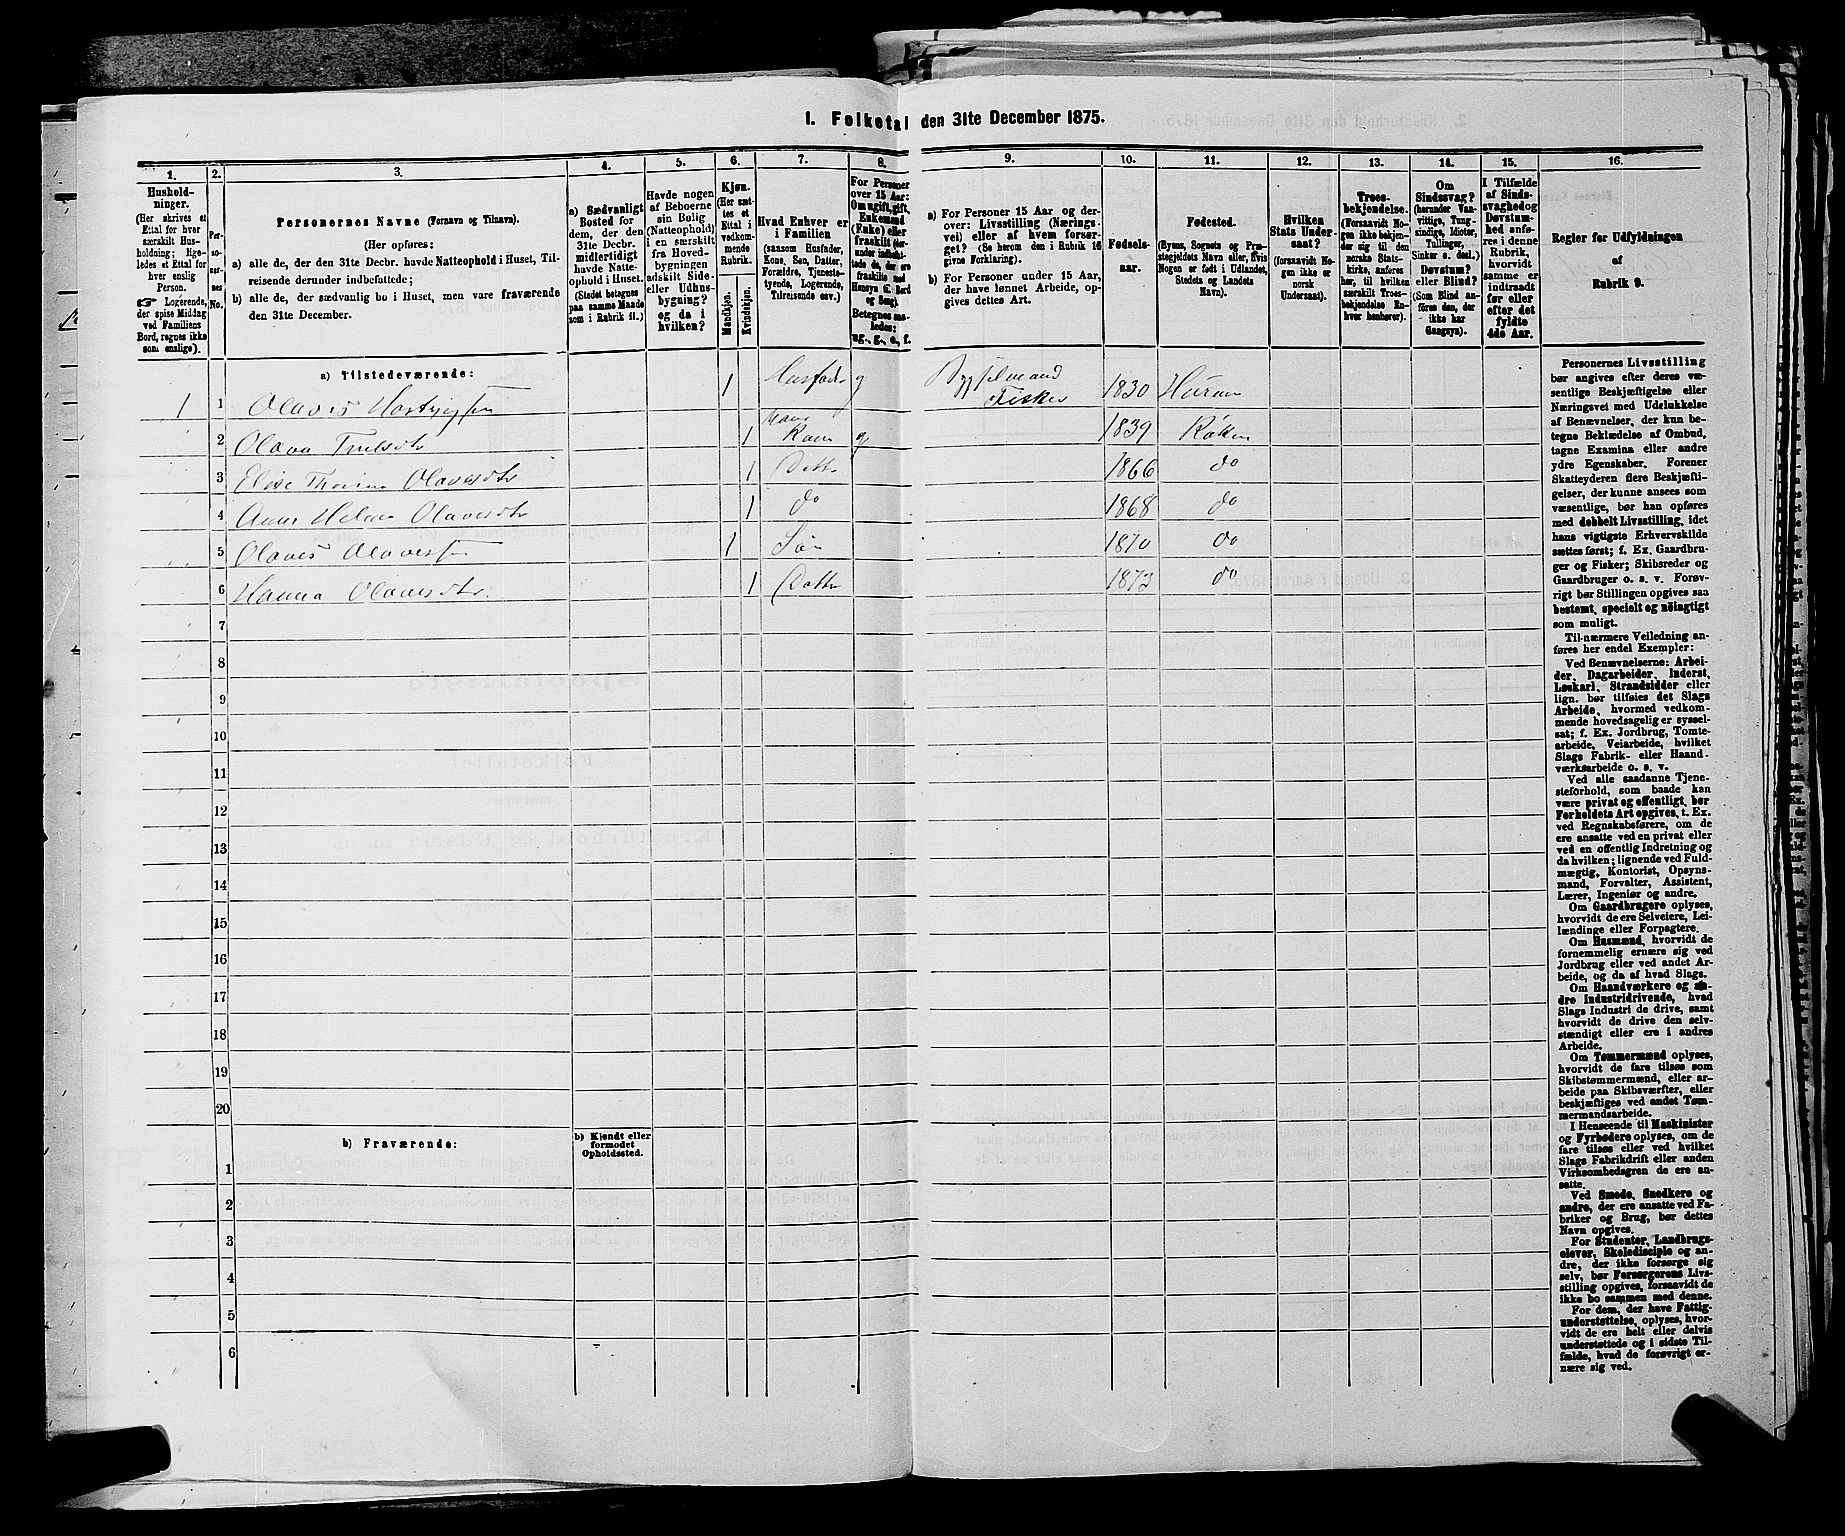 1. Folketal den 31te December 1875.
1. 2. 3. 4. 5. 6. 7. 8. 9. 10. 11. 12. 13. 14. 15. 16.
Hushold-
ninger.
(Her skrives et
Ettal for hver
særskilt Hus-
holdning; lige-
ledes et Ettal for
hver enslig
Person.
☞ Logerende,
der spise Middag
ved Familiens
Bord, regnes ikke
som enslige).
Per-
so-
ner-
nes
No.
Personernes Navne (Fornavn og Tilnavn).
(Her opføres:
a) alle de, der den 31te Decbr. havde Natteophold i Huset, Til-
reisende derunder indbefattede;
b) alle de, der sædvanlig bo i Huset, men vare fraværende
den 31te December.
a) Sædvanligt
Bosted for
dem, der den
31te Decbr.
midlertidigt
havde Natte-
ophold i Huset.
(Stedet betegnes
paa samme Maade
som i Rubrik 11.)
Havde nogen
af Beboerne
sin Bolig
(Natteophold)
i en særskilt
fra Hoved-
bygningen
adskilt Side-
eller Udhus-
bygning?
og da i
hvilken?
Kjøn.
(Her sæt-
tes et
Ettal i
vedkom-
mende
Rubrik.
Mandkjøn.
Kvindekjøn.
Hvad Enhver er
i Familien
(saasom Husfader,
Kone, Søn, Datter,
Forældre, Tjeneste-
tyende, Logerende,
Tilreisende osv.)
For Personer
over 15 Aar:
Om ugift, gift,
Enkemand
(Enke) eller
fraskilt
Betegnes saa-
ledes:
ug., g., e., f.
a) For Personer 15 Aar og der-
over: Livsstilling (Nærings-
vei) eller af hvem forsør-
get? (Se herom den i Rubrik 16
givne Forklaring).
b) For Personer under 15 Aar,
der have lønnet Arbeide, op-
gives dettes Art.
Fødsels-
aar.
Fødested.
(Byens, Sognets og Præ-
stegjeldets Navn eller, hvis
Nogen er født i Udlandet,
Stedets og Landets
Navn).
Hvilken
Stats Under-
saat?
(forsaavidt No-
gen ikke er
norsk
Undersaat).
Troes-
bekjendelse.
(Forsaavidt No-
gen ikke bekjen-
der sig til den
norske Stats-
kirke, anføres
her, til hvilken
særskilt Troes-
bekjendelse En-
hver henhører).
Om
Sindssvag?
(herunder Van-
vittige, Tung-
sindige, Idioter,
Tullinger,
Sinker o. desl.)
Døvstum?
eller Blind?
(Som Blind an-
føres den, der
ikke har
Gangsyn).
I Tilfælde
af Sinds-
svaghed og
Døvstum-
hed anfø-
res i denne
Rubrik,
hvorvidt
samme er
indtraadt
før eller
efter det
fyldte
4de Aar.
Regler for Udfyldningen
af
Rubrik 9.
a) Tilstedeværende:
1 1 Olaves 1 Husfader g Bygselmand Fisker 1830 Hurum
2 Olava Trulsdtr 1 Hans Kone g 1839 Røken
3 Elise Thorine Olavesdtr 1 Dattr 1866 do
4 Anne Helene Olavesdtr 1 do 1868 do
5 Olaves Olavessen 1 Søn 1870 do
6 Hanna Olavesdtr. 1 Dattr 1873 do
7
8
9
10
11
12
13
14
15
16
17
18
19
20
b) Fraværende:
b) Kjendt eller
formodet
Opholdssted.
1
2
3
4
5
6
Personernes Livsstilling
bør angives efter deres væ-
sentlige Beskjæftigelse eller
Næringsvei med Udelukkelse
af Benævnelser, der kun be-
tegne Beklædelse af Ombud,
tagne Examina eller andre
ydre Egenskaber. Forener
Skatteyderen flere Beskjæfti-
gelser, der kunne ansees som
væsentlige, bør han opføres
med dobbelt Livsstilling, idet
hans vigtigste Erhvervskilde
sættes først; f. Ex. Gaardbru-
ger og Fisker; Skibsreder og
Gaardbruger o. s. v. Forøv-
rigt bør Stillingen opgives saa
bestemt, specielt og nöiagtigt
som muligt.
Til nærmere Veiledning an-
føres her endel Exempler:
Ved Benævnelserne: Arbei-
der, Dagarbeider, Inderst,
Løskarl, Strandsidder eller
lign. bør tilføies det Slags
Arbeide, hvormed vedkom-
mende hovedsagelig er syssel-
sat; f. Ex. Jordbrug, Tomte-
arbeide, Veiarbeide, hvilket
Slags Fabrik- eller Haand-
værksarbeide o. s. v.
Ved alle saadanne Tjene-
steforhold, som baade kan
være privat og offentligt, bør
Forholdets Art opgives, t. Ex.
ved Regnskabsførere, om de
ere ansatte ved en privat eller
ved en offentlig Indretning og
da hvilken; lignende ved Fuld-
mægtig, Kontorist, Opsyns-
mand, Forvalter, Assistent,
Lærer, Ingeniør og andre.
Om Gaardbrugere oplyses,
hvorvidt de ere Selveiere, Lei-
lændinge eller Forpagtere.
Om Husmænd, hvorvidt de
fornemmelig ernære sig ved
Jordbrug eller ved andet Ar-
beide, og da af hvad Slags.
Om Haandværkere og an-
dre Industridrivende, hvad
Slags Industri de drive, samt
hvorvidt de drive den selv-
stændigt eller ere i andres
Arbeide.
Om Tømmermænd oplyses,
hvorvidt de fare tilsøs som
Skibstømmermænd, eller ar-
beide paa Skibsværfter, eller
beskjæftiges ved andet Tøm-
mermandsarbeide.
I Henseende til Maskinister
og Fyrbødere oplyses, om de
fare tilsøs eller ved hvilket
Slags Fabrikdrift eller anden
Virksomhedsgren de ere an-
satte.
Ved Smede, Snedkere og
andre, der ere ansatte ved Fa-
briker og Brug, bør dettes
Navn opgives.
For Studenter, Landbrugs-
elever, Skoledisciple og an-
dre, der ikke forsørge sig
selv, bør Forsørgerens Livs-
stilling opgives, forsaavidt de
ikke bo sammen med denne.
For dem, der have Fattig-
understøttelse, oplyses, hvor-
vidt de ere helt eller delvis
understøttede og i sidste Til-
fælde, hvad de forøvrigt er-
nære sig ved.